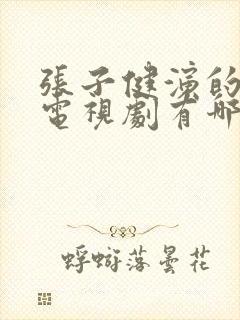 張子健演的
電視劇有哪
蜉蝣落曇花